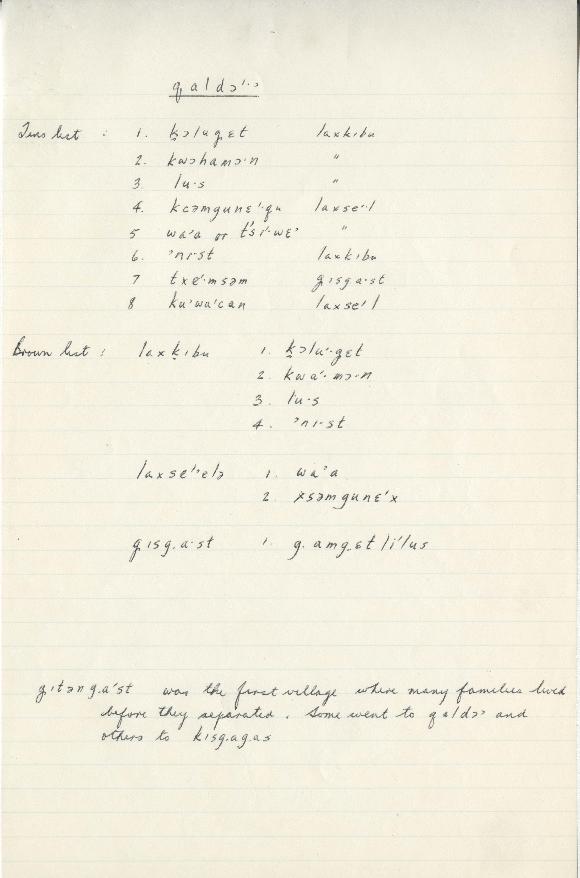 qaldəʹ·ᵓ
Tens list : 1. ḵəlugɛt laxkıbu
2. kwəhamə·n "
3. lu·s "
4. kcəmgunɛʹ·qu laxseʹ·l
5 waʹa or t's·iʹ·wɛʾ "
6. ʾnı·st laxkıbu
7 txeʹ·msəm gısga·st
8 kuʹwaʹcan laxseʹl
Brown list : laxḵıbu 1. ḵəluʹ·gɛt
2. kwaʹ·mə·n
3. lu·s
4. ʾnı·st
laxseʹ·elə 1. waʾa
2. xsəmgunɛʹx
gısg.a·st 1. g.amg.ɛt liʹlus
gıtəng.aʹst was the first village where many families lived
before they separated. Some went to qaldəʾ and
others to kısg.ag.as